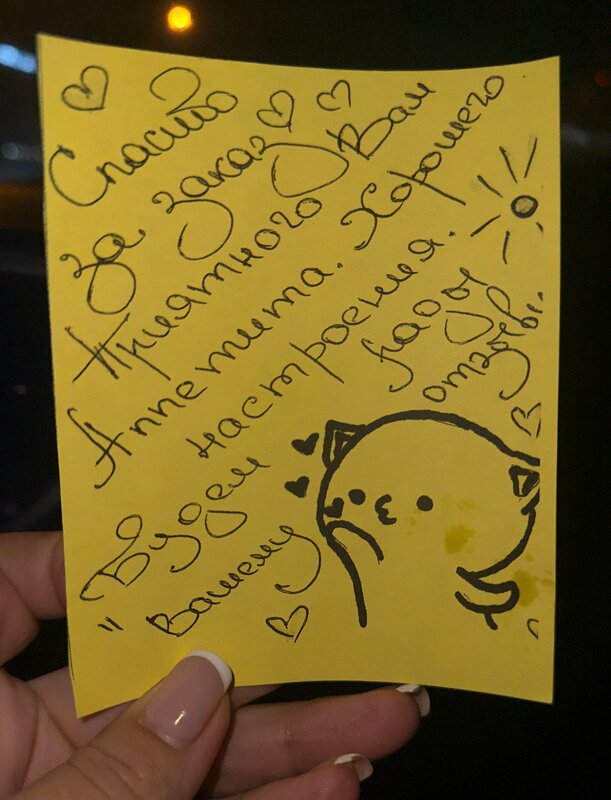 Спасибо
за заказ
Приятного Вам
Аппетита. Хорошего
настроения.
"Будем рады
вашему отзову.